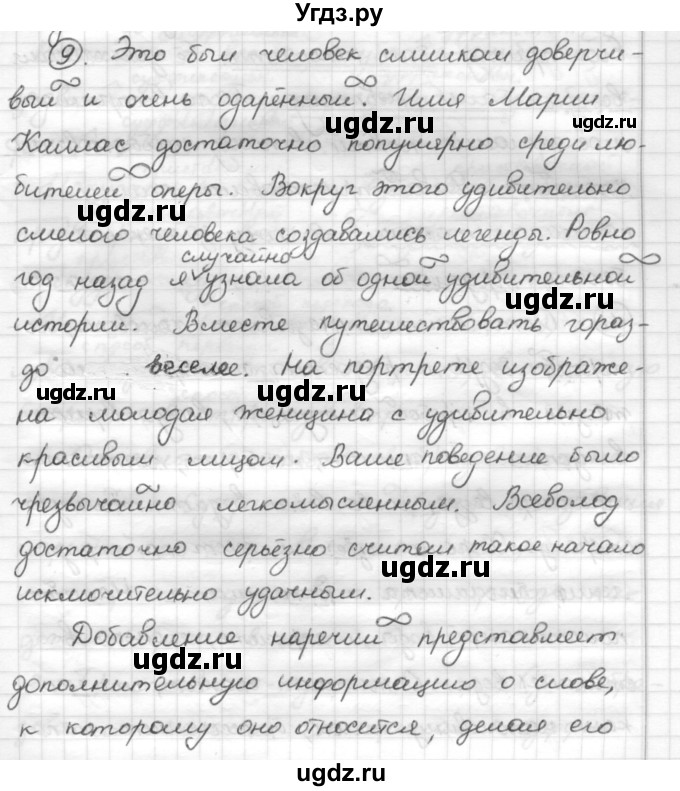 Угдз.ру
9. Это был человек слишком доверчи-
вый и очень одарённый. Имя Марии
ugdz.ru
ugdz.ru
Каллас достаточно популярно среди лю-
бителей оперы. Вокруг этого удивительно
ugdz.ru
смелого человека создавались легенды. Ровно
случайно
год назад я узнала об одной удивительной
ugdz.ru
истории. Вместе путешествовать гораз-
до веселее. На портрете изображе-
ugdz.ru
ugdz.ru
на молодая женщина с удивительно
красивым лицом. Ваше поведение было
чрезвычайно легкомысленным. Всеволод
достаточно серьёзно считал такое начало
ugdz.ru
исключительно удачным.
Добавление наречий представляет
ugdz.ru
дополнительную информацию о слове,
к которому оно относится, делая его
ugdz.ru